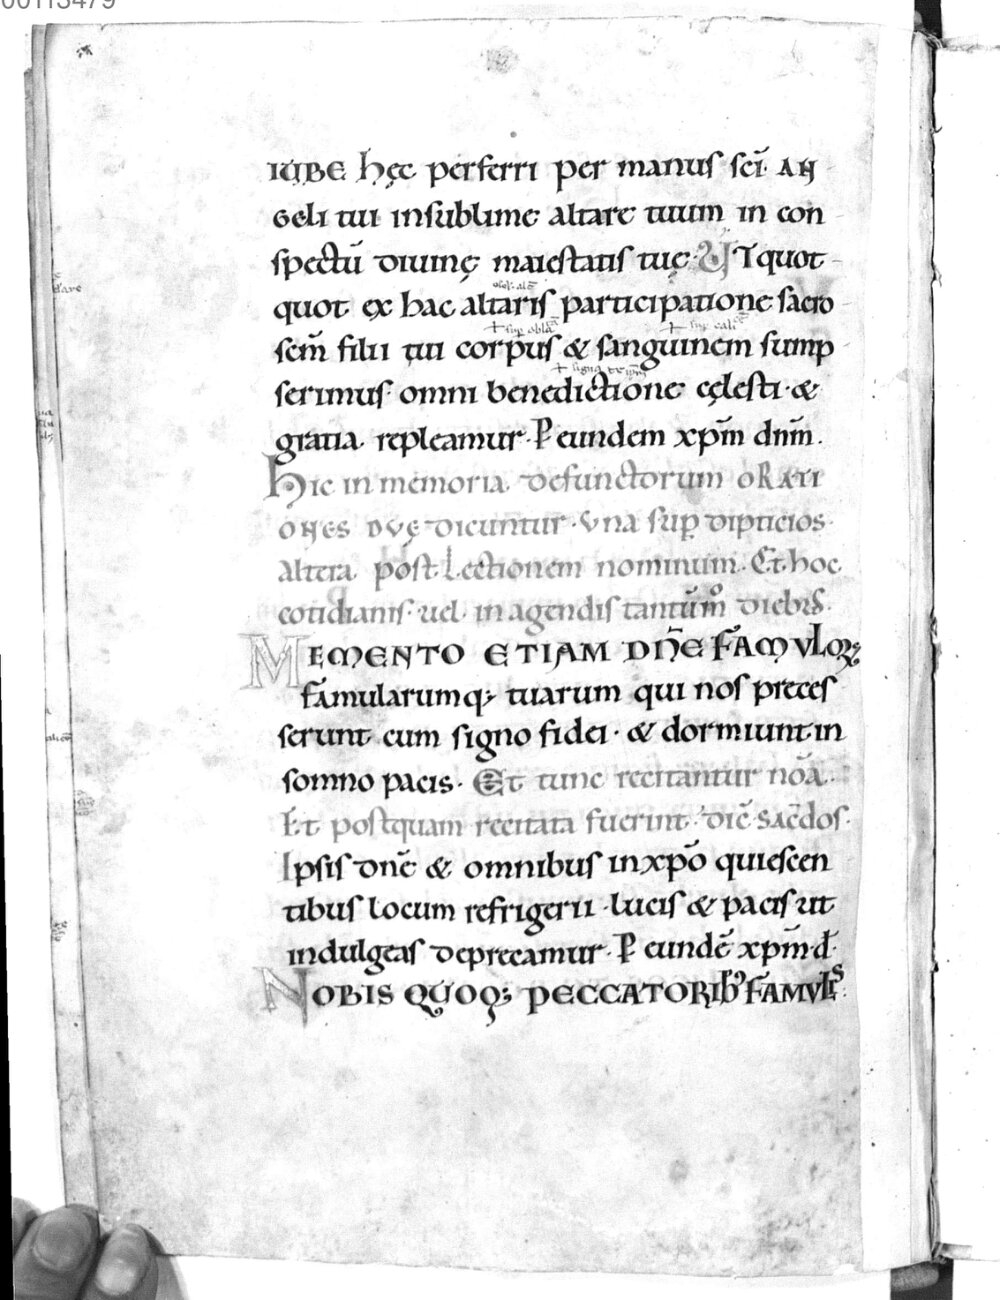 00113479
IUBE hęc perferri per manuſ ſc̄i AN
Geli tui inſublime altare tuum in con
ſpectū diuinę maieſtatiſ tuę· UT quot
quot ex hac altariſ participatione ſacro
ſcm̄ filii tui corpuſ & ſanguinem ſump
ſerimuſ· omni benedictione cęleſti· &
gratia repleamur· P eundem xpm̄ dnm̄.
Hic in memoria defunctorum oRATI
ONES DVĘ dicuntur· Vna ſup dipticioſ·
Altera poſt Lectionem nominum. Et hoc
cotidianiſ· uel in agendiſ tantūm̊ diebuſ.
MEMENTO ETIAM DN̄E FAMVLOꝝ
famularumq; tuarum qui noſ preceſ
ſerunt cum ſigno fidei· & dormiunt in
ſomno paciſ· Et tunc recitantur nōa.
Et poſtquam recitata fuerint· dic̄ SAC̄doſ·
Ipſiſ dn̄e & omnibuſ inxpō quieſcen
tibuſ locum refrigerii· luciſ & paciſ ut
indulgeaſ deprecamur· P eundē xpm̄ d̄·
NOBIS QUOQ; PECCATORIB; FAMVLIS